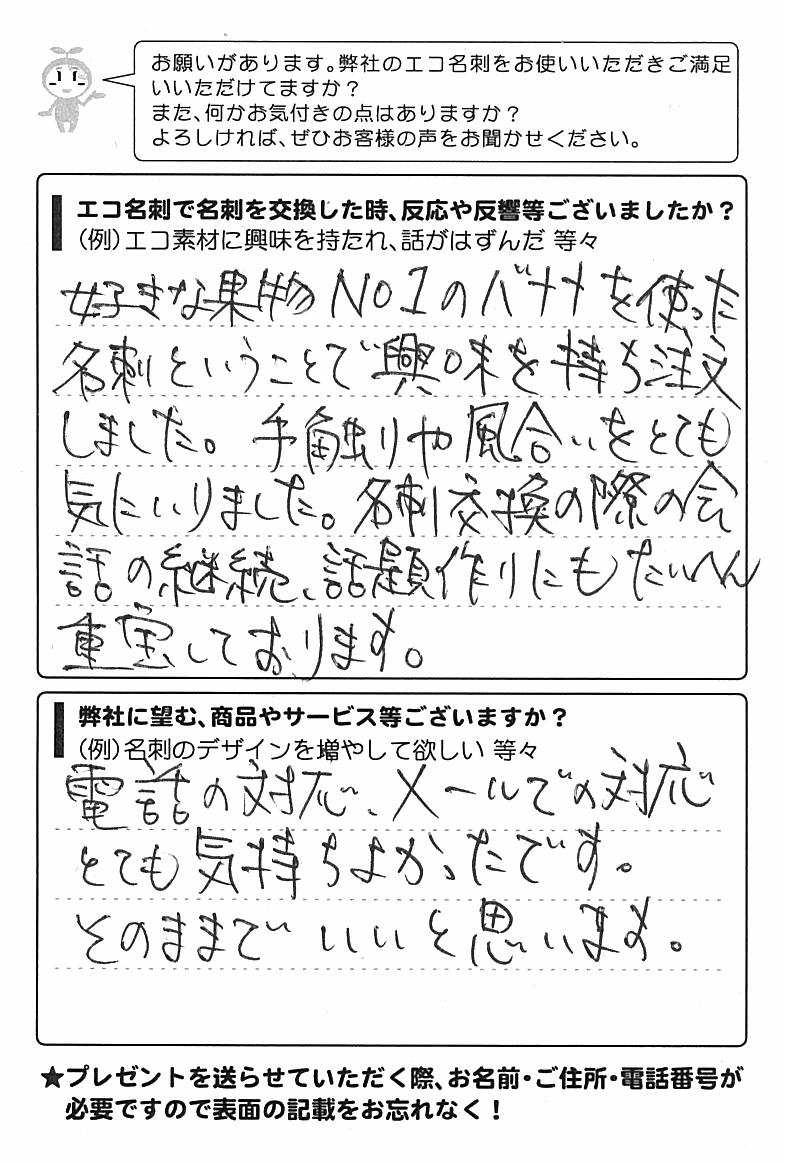 お願いがあります。弊社のエコ名刺をお使いいただきご満足
いいただけてますか？
また、何かお気付きの点はありますか？
よろしければ、ぜひお客様の声をお聞かせください。
エコ名刺で名刺を交換した時、反応や反響等ございましたか？
（例）エコ素材に興味を持たれ、話がはずんだ 等々
好きな果物 NO1のバナナを使った
名刺ということで興味を持ち注文
しました。手触りや風合いをとても
気にいりました。名刺交換の際の会
話の継続、話題作りにもたいへん
重宝しております。
弊社に望む、商品やサービス等ございますか？
（例）名刺のデザインを増やして欲しい 等々
電話の対応、メールでの対応
とても気持ちよかったです。
そのままでいいと思います。
★プレゼントを送らせていただく際、お名前・ご住所・電話番号が
必要ですので表面の記載をお忘れなく！